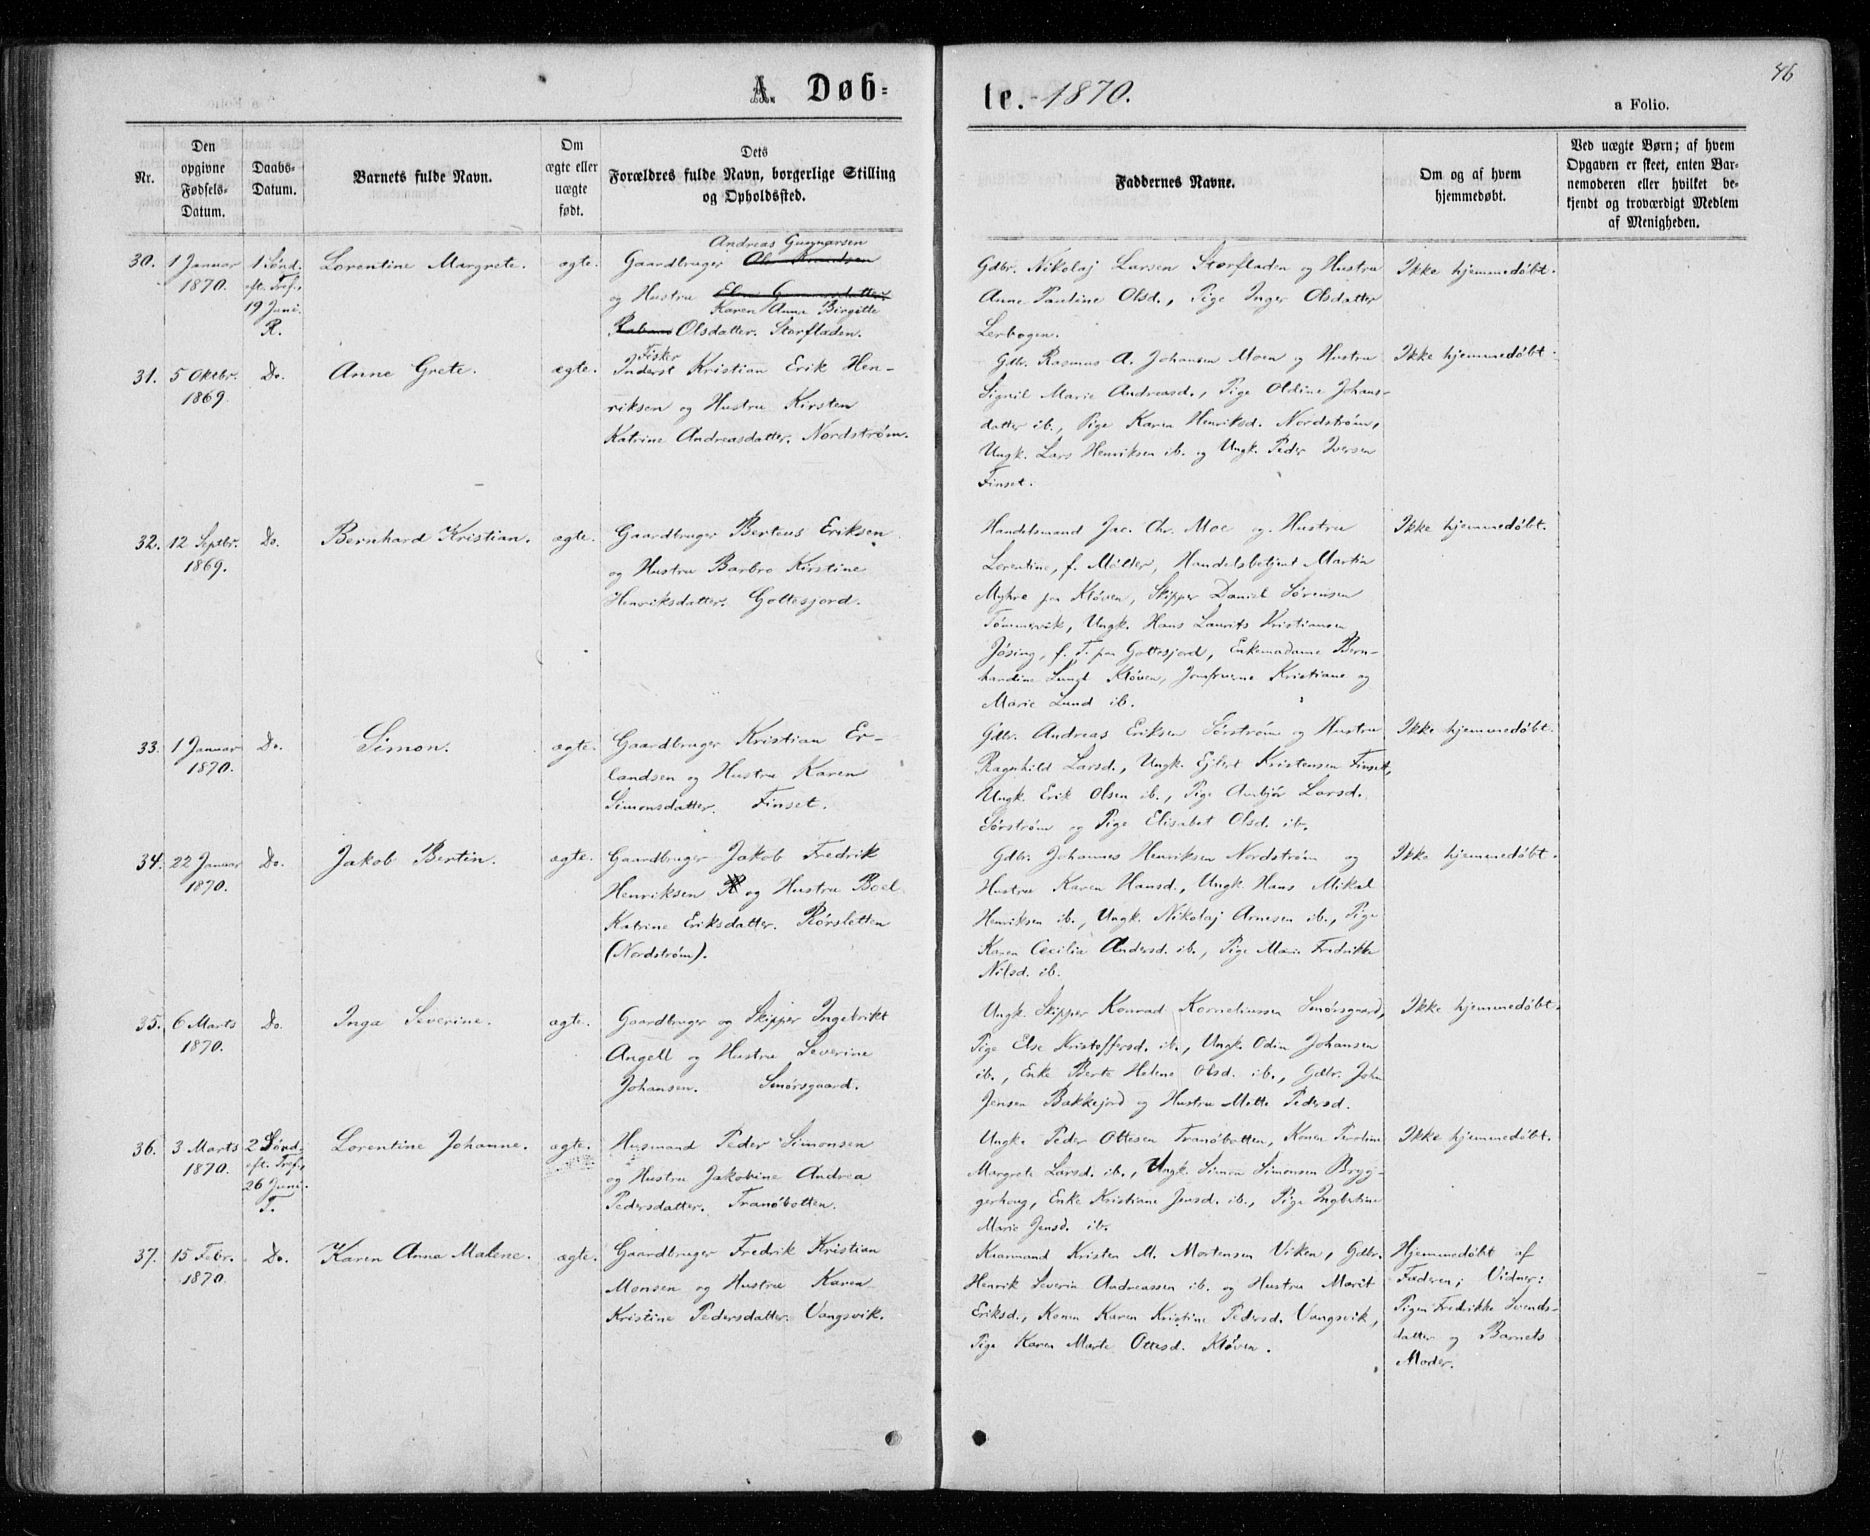 46
A. Døb=
te. 1870.
a Folio.
Nr.
Den
opgivne
Fødsels-
Datum.
Daabs-
Datum.
Barnets fulde Navn.
Om
ægte eller
uægte
født.
Dets
Forældres fulde Navn, borgerlige Stilling
og Opholdssted.
Faddernes Navne.
Om og af hvem
hjemmedøbt.
Ved uægte Børn; af hvem
Opgaven er skeet, enten Bar-
nemoderen eller hvilket be-
kjendt og troværdigt Medlem
af Menigheden.
30. 1 Januar
1870.
1 Sønd.
eft. Tref.,
19 Juni.
R.
Lorentine Margrete.
ægte.
Andreas Gunnarsen
Gaardbruger Ole Knudsen
og Hustru
Karen Anna Birgitte
Olsdatter. Storfladen.
Gdbr. Nikolaj Larsen Storfladen og Hustru
Anne Pauline Olsd., Pige Inger Olsdatter
Lerbogen.
Ikke hjemmedøbt.
31. 5 Oktbr.
1869.
Do.
Anne Grete.
ægte.
Fisker
Inderst Kristian Erik Hen-
riksen og Hustru Kirsten
Katrine Andreasdatter. Nordstrøm.
Gdbr. Rasmus A. Johansen Moen og Hustru
Signil Marie Andreasd., Pige Oldine Johans-
datter ib., Pige Karen Henriksd. Nordstrøm,
Ungk. Lars Henriksen ib. og Ungk. Peder Iversen
Finset.
Ikke hjemmedøbt.
32. 12 Septbr.
1869.
Do.
Bernhard Kristian.
ægte.
Gaardbruger Berteus Eriksen
og Hustru Barbro Kirstine
Henriksdatter. Gottesjord.
Handelsmand Jac. Chr. Moe og Hustru
Lorentine, f. Møller, Handelsbetjent Martin
Myhre paa Kløven, Skipper Daniel Sørensen
Tømmervik, Ungk. Hans Laurits Kristiansen
Jøsing, f. T. paa Gottesjord, Enkemadame Bern-
hardine Lund Kløven, Jomfruerne Kristiane og
Marie Lund ib.
Ikke hjemmedøbt.
33. 1 Januar
1870.
Do.
Simon.
ægte.
Gaardbruger Kristian Er-
landsen og Hustru Karen
Simonsdatter. Finset.
Gdbr. Andreas Eriksen Sørstrøm og Hustru
Ragnhild Larsd., Ungk. Ejlert Kristensen Finset,
Ungk. Erik Olsen ib., Pige Anbjør Larsd.
Sørstrøm og Pige Elisabet Olsd. ib.
Ikke hjemmedøbt.
34. 22 Januar
1870.
Do.
Jakob Bertin.
ægte.
Gaardbruger Jakob Fredrik
Henriksen og Hustru Boel
Katrine Eriksdatter. Rørsletten
(Nordstrøm).
Gdbr. Johannes Henriksen Nordstrøm og
Hustru Karen Hansd., Ungk. Hans Mikal
Henriksen ib., Ungk. Nikolaj Arnesen ib., Pige
Karen Cecilia Andersd. ib., Pige Marie Fredrikke
Nilsd. ib.
Ikke hjemmedøbt.
35. 6 Marts
1870.
Do.
Inga Severine.
ægte.
Gaardbruger og Skipper Ingebrikt
Angell og Hustru Severine
Johansen. Smørsgaard.
Ungk. Skipper Konrad Korneliussen Smørsgaard,
Pige Else Kristoffersd. ib., Ungk. Odin Johansen
ib., Enke Berte Helene Olsd. ib., Gdbr. John
Jensen Bakkejord og Hustru Mette Pedersd.
Ikke hjemmedøbt.
36. 3 Marts
1870.
2 Sønd.
eft. Tref.,
26 Juni.
T.
Lorentine Johanne.
ægte.
Husmand Peder Simonsen
og Hustru Jakobine Andrea
Pedersdatter. Tranøbotten.
Ungk. Peder Ottesen Tranøbotten, Konen Pauline
Margrete Larsd. ib., Ungk. Simon Simonsen Bryg-
gerhaug, Enke Kristiane Jensd. ib., Pige Ingbertine
Marie Jensd. ib.
Ikke hjemmedøbt.
37. 15 Febr.
1870.
Do.
Karen Anna Malene.
ægte.
Gaardbruger Fredrik Kristian
Monsen og Hustru Karen
Kristine Pedersdatter. Vangsvik.
Kaarmand Kristen M. Mortensen Viken, Gdbr.
Henrik Severin Andreassen ib. og Hustru Marit
Eriksd., Konen Karen Kristine Pedersd. Vangsvik,
Pige Karen Marte Ottesd. Kløven.
Hjemmedøbt af
Faderen; Vidner:
Pigen Fredrikke Svends-
datter og Barnets
Moder.